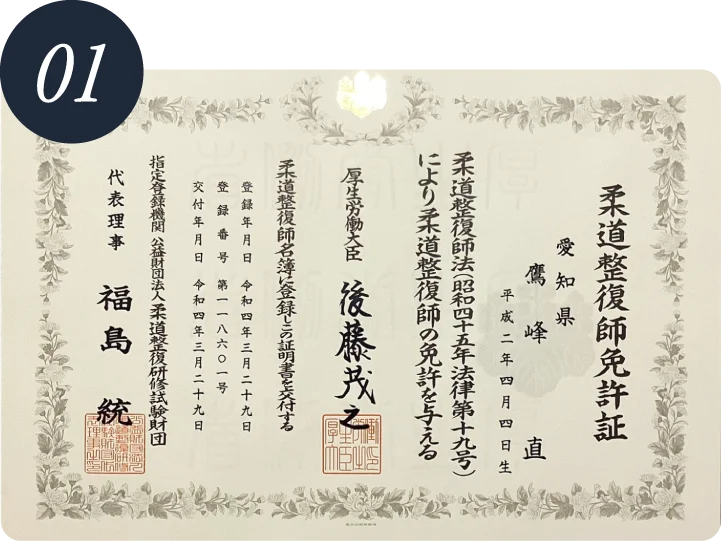 01
柔道整復師免許証
愛知県
鷹峰 直
平成二年四月四日生
柔道整復師法(昭和四十五年法律第十九号)
により柔道整復師の免許を与える
厚生労働大臣 後藤茂之
柔道整復師名簿に登録しこの証明書を交付する
登録年月日 令和四年三月二十九日
登録番号 第一一八六〇一号
交付年月日 令和四年三月二十九日
指定登録機関 公益財団法人 柔道整復研修試験財団
代表理事 福島 統